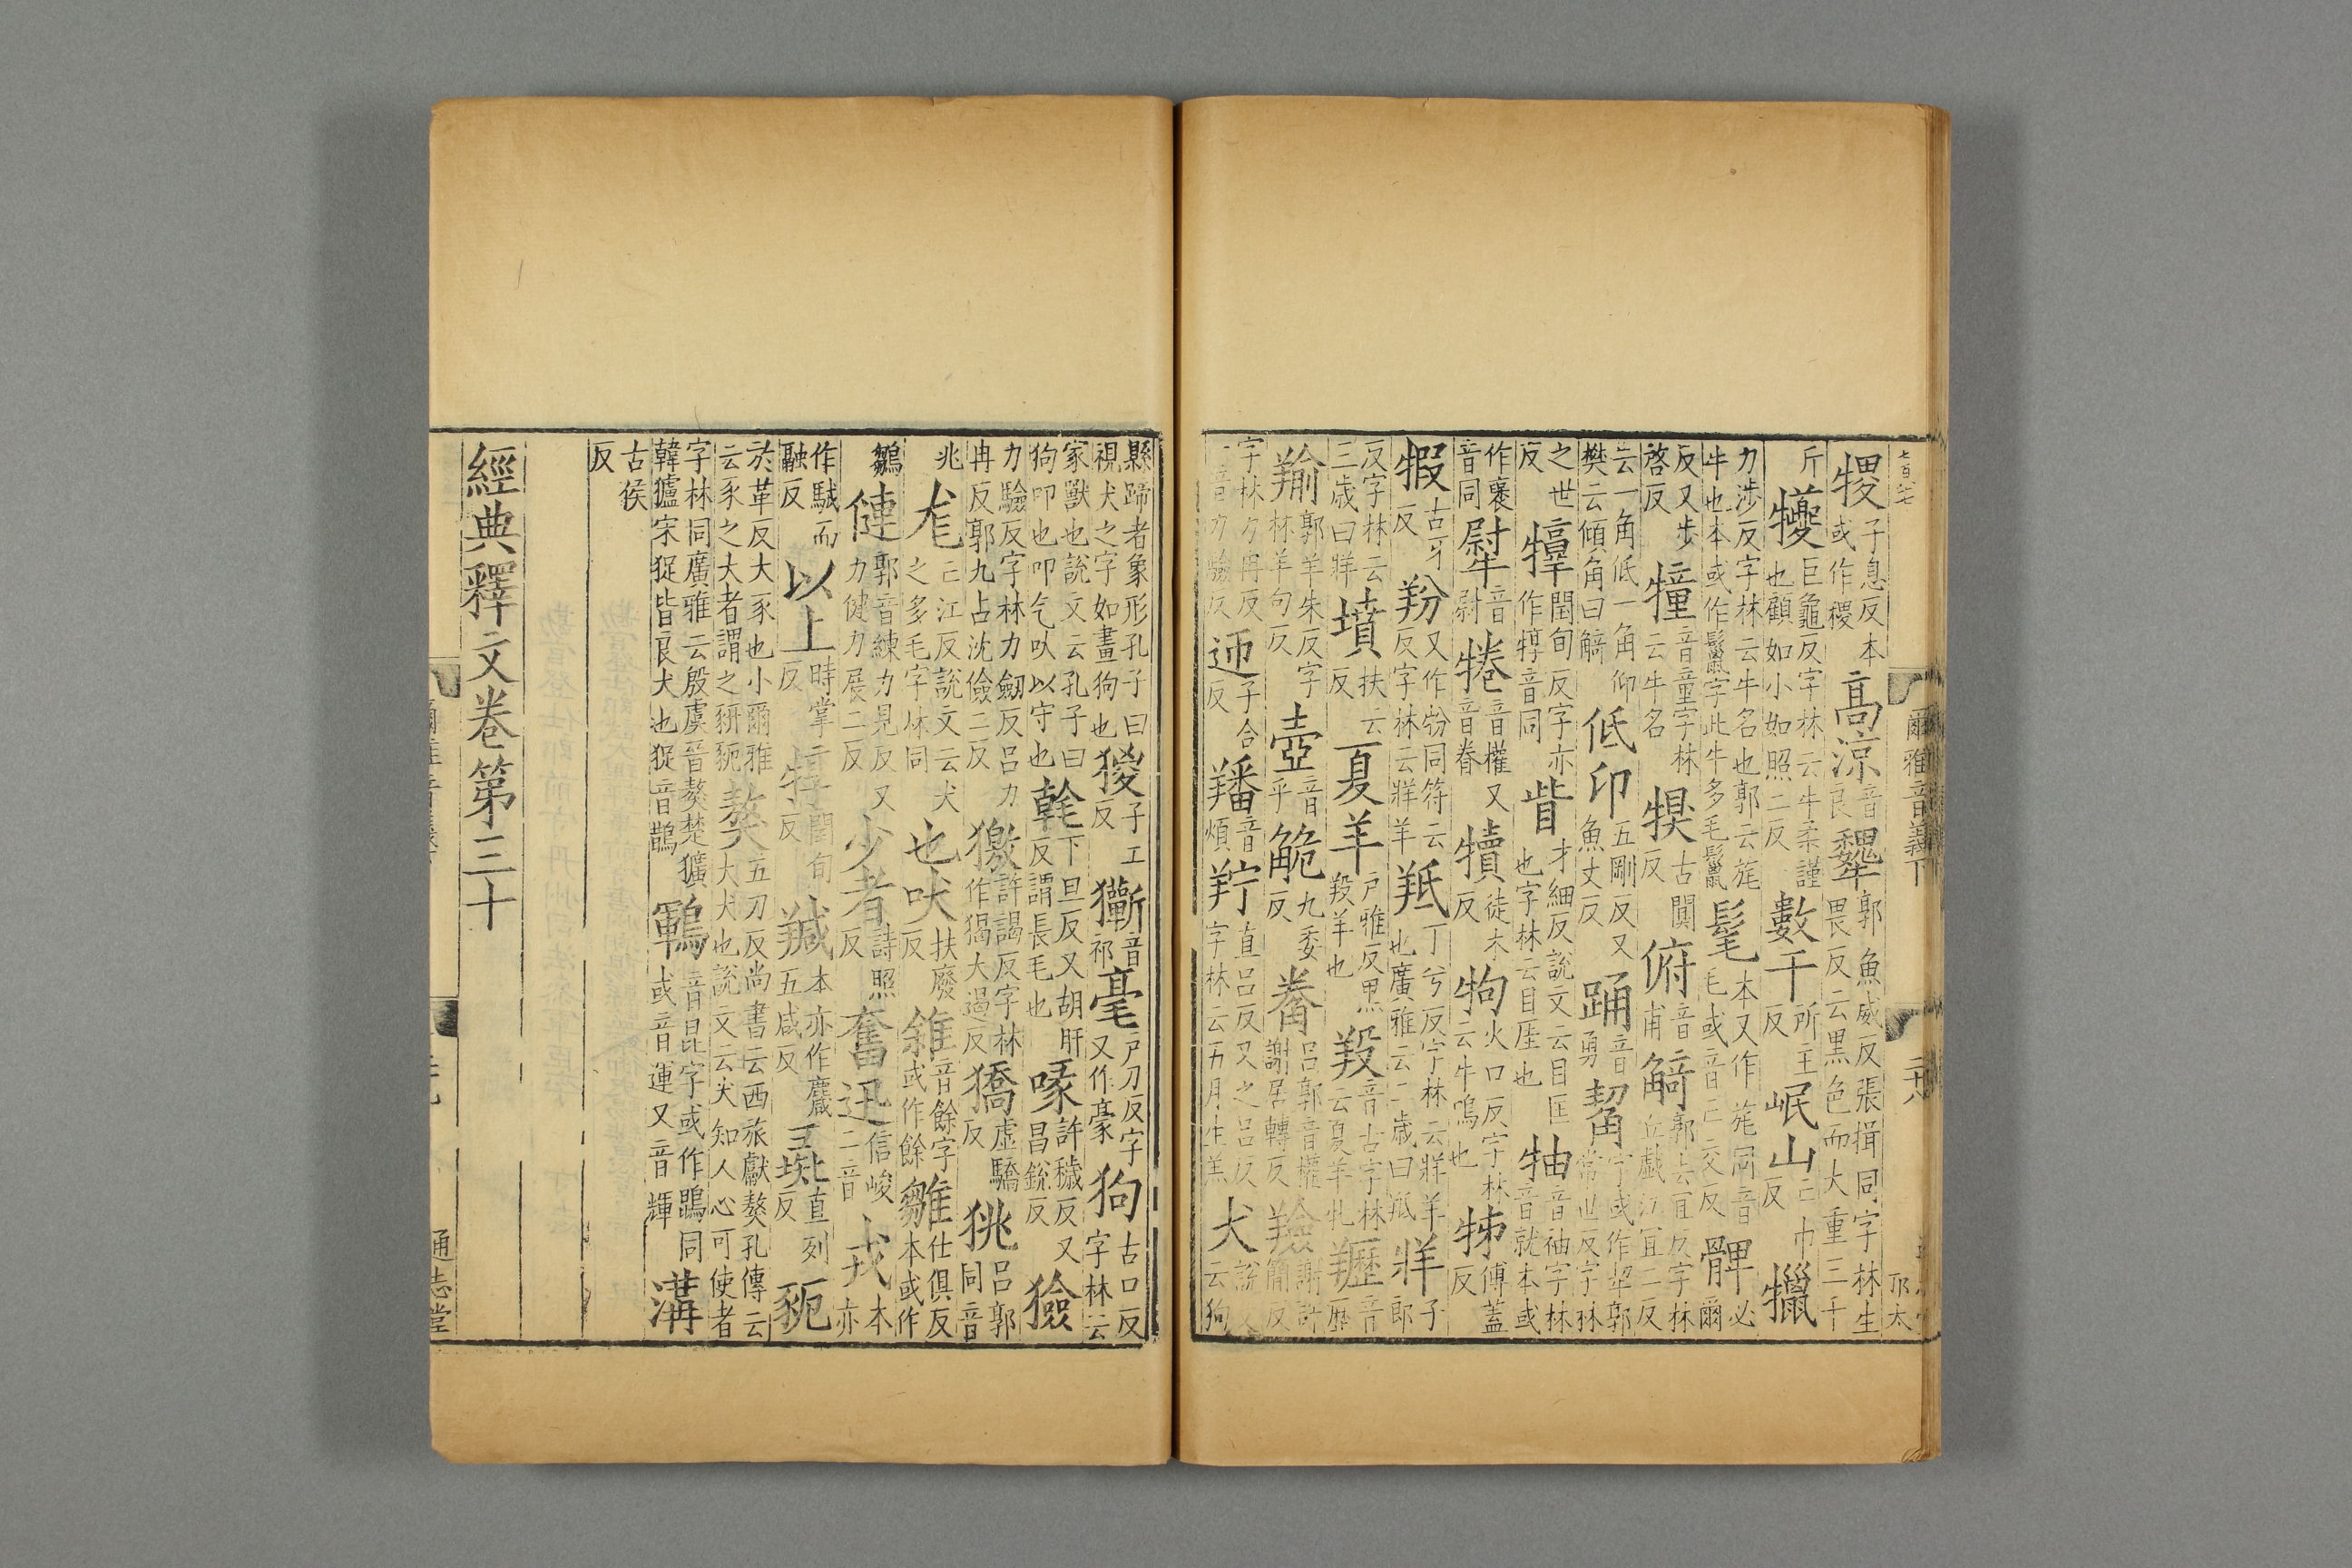 七百六七
㮨子息反本或作稷高涼音良犩郭魚威反張揖同字林生畏反云黒色而大重三千
斤犪巨龜反字林云牛柔謹也顧如小如照二反數千所主反岷山亡巾反犣
力涉反字林云牛名也郭云旄牛也本或作鬣字此牛多毛鬣髦本又作旄同音毛或音亡交反髀必爾
反又步啓反犝音童字林云牛名犑古闃反俯音甫觭郭去宜反字林丘戲江宜二反
云一角低一角仰樊云傾角曰觭低卬五剛反又魚丈反踊音勇觢字或作挈郭常世反字林
之世反犉閏旬反字亦作犉音同眥才細反說文云目匡也字林云目厓也牰音袖字林音就本或
作褎音同犚音尉牷音權又音眷犢徒木反㸸火口反字林云牛鳴也㸬傅蓋反
犌古牙反羒又作㸮同符云反字林云牂羊羝丁兮反字林云牂羊也廣雅云二歲曰羝牂子郎
反字林云三歲曰牂墳扶云反夏羊戶雅反黒羖羊也羖音古字林云夏羊牝羺音歷
羭郭羊朱反字林羊句反壺音乎觤九委反觠呂郭音權謝居轉反羷謝許簡反
字林力冉反一音力驗反迊子合反羳音煩羜直呂反又之呂反字林云五月生羔犬說文云狗
爾雅音義下
二十八
邛太
縣蹄者象形孔子曰視犬之字如畫狗也猣子工反獑音祁毫戶刀反字又作豪狗古口反字林云
家獸也說文云孔子曰狗叩也叩气吠以守也㹕下旦反又胡肝反謂長毛也喙許穢反又昌銳反獫
力驗反字林力劒反呂力冉反郭九占沈儉二反獥許謁反字林作猲大過反獢虛驕反狣呂郭同音
兆尨亡江反說文云犬之多毛字林同也吠扶廢反雓音餘字或作餘雛仕俱反本或作
鶵僆郭音練力見反又力健力展二反少者詩照反奮迅信峻二音戎本亦
作駥而融反以上時掌反犉閏旬反羬本亦作麙五咸反彘直列反豟
於革反大豕也小爾雅云豕之大者謂之豜豟獒五刀反尚書云西旅獻獒孔傳云大犬也說文云犬知人心可使者
字林同廣雅云殷虞晉獒楚獷韓獹宋猎皆良犬也猎音鵲鶤音昆字或作鵾同或音運又音輝溝
古侯反
經典釋文卷第三十
通志堂